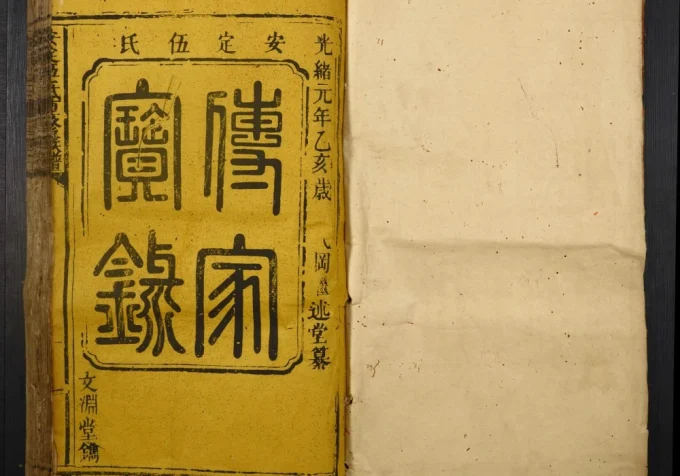 安定伍氏
光緒元年乙亥歲 岡述堂纂
傳家
寶錄
文淵堂鐫